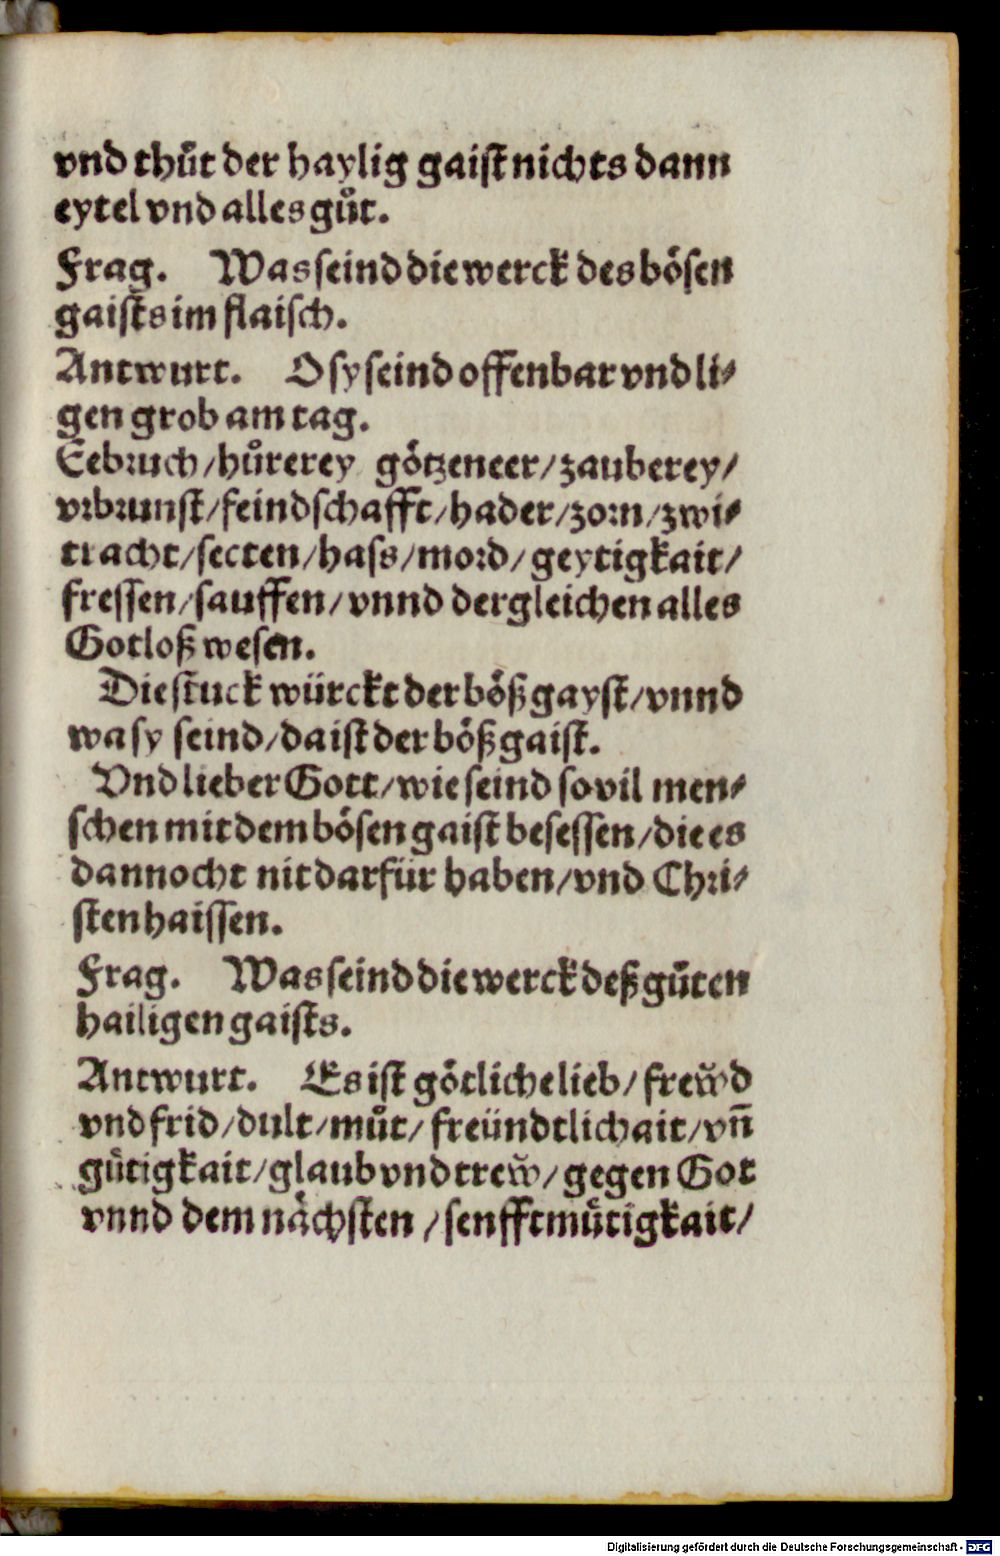 vnd thůt der haylig gaist nichts dann
eytel vnd alles gůt.
Frag. Was seind die werck des bösen
gaists im flaisch.
Antwurt. O sy seind offenbar vnd li⸗
gen grob am tag.
Eebruch / hůrerey götzeneer / zauberey /
vrbrunst / feindschafft / hader / zorn / zwi⸗
tracht / secten / hass / mord / geytigkait /
fressen / sauffen / vnnd dergleichen alles
Gotloß wesen.
Die stuck würckt der böß gayst / vnnd
wa sy seind / da ist der böß gaist.
Vnd lieber Gott / wie seind so vil men⸗
schen mit dem bösen gaist besessen / die es
dannocht nit darfür haben / vnd Chri⸗
sten haissen.
Frag. Was seind die werck deß gůten
hailigen gaists.
Antwurt. Es ist götliche lieb / frew̆d
vnd frid / dult / můt / freündtlichait / vn̄
gůtigkait / glaub vnd trew̆ / gegen Got
vnnd dem nächsten / senfftmůtigkait /
Digitalisierung gefördert durch die Deutsche Forschungsgemeinschaft - DFG